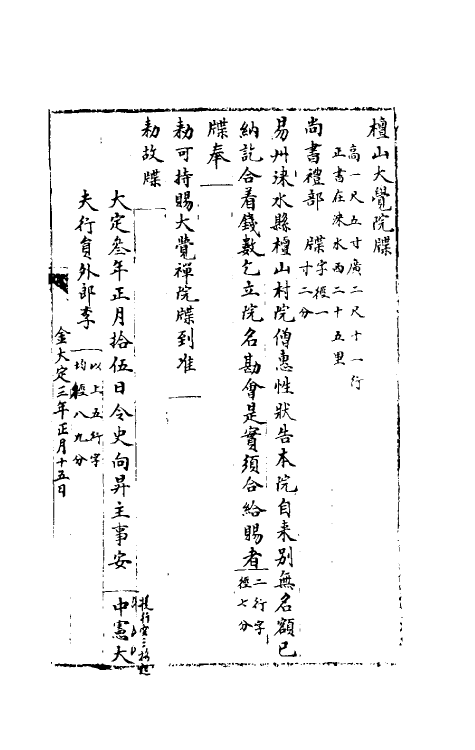 檀山大覺院牒
高一尺五寸廣二尺十一行
正書在淶水西二十五里
尚書禮部 牒字徑一
寸二分
易州淶水縣檀山村院僧惠性狀告本院自来別無名額已
納訖合着錢數乞立院名勘會是實須合給賜者 二行字
徑七分
牒奉
勑可持賜大覺禪院牒到准
勑故牒
大定叁年正月拾伍日令史向昇主事安 中憲大
夫行員外郎李 以上五行字
均徑八九分
金大定三年正月十五日